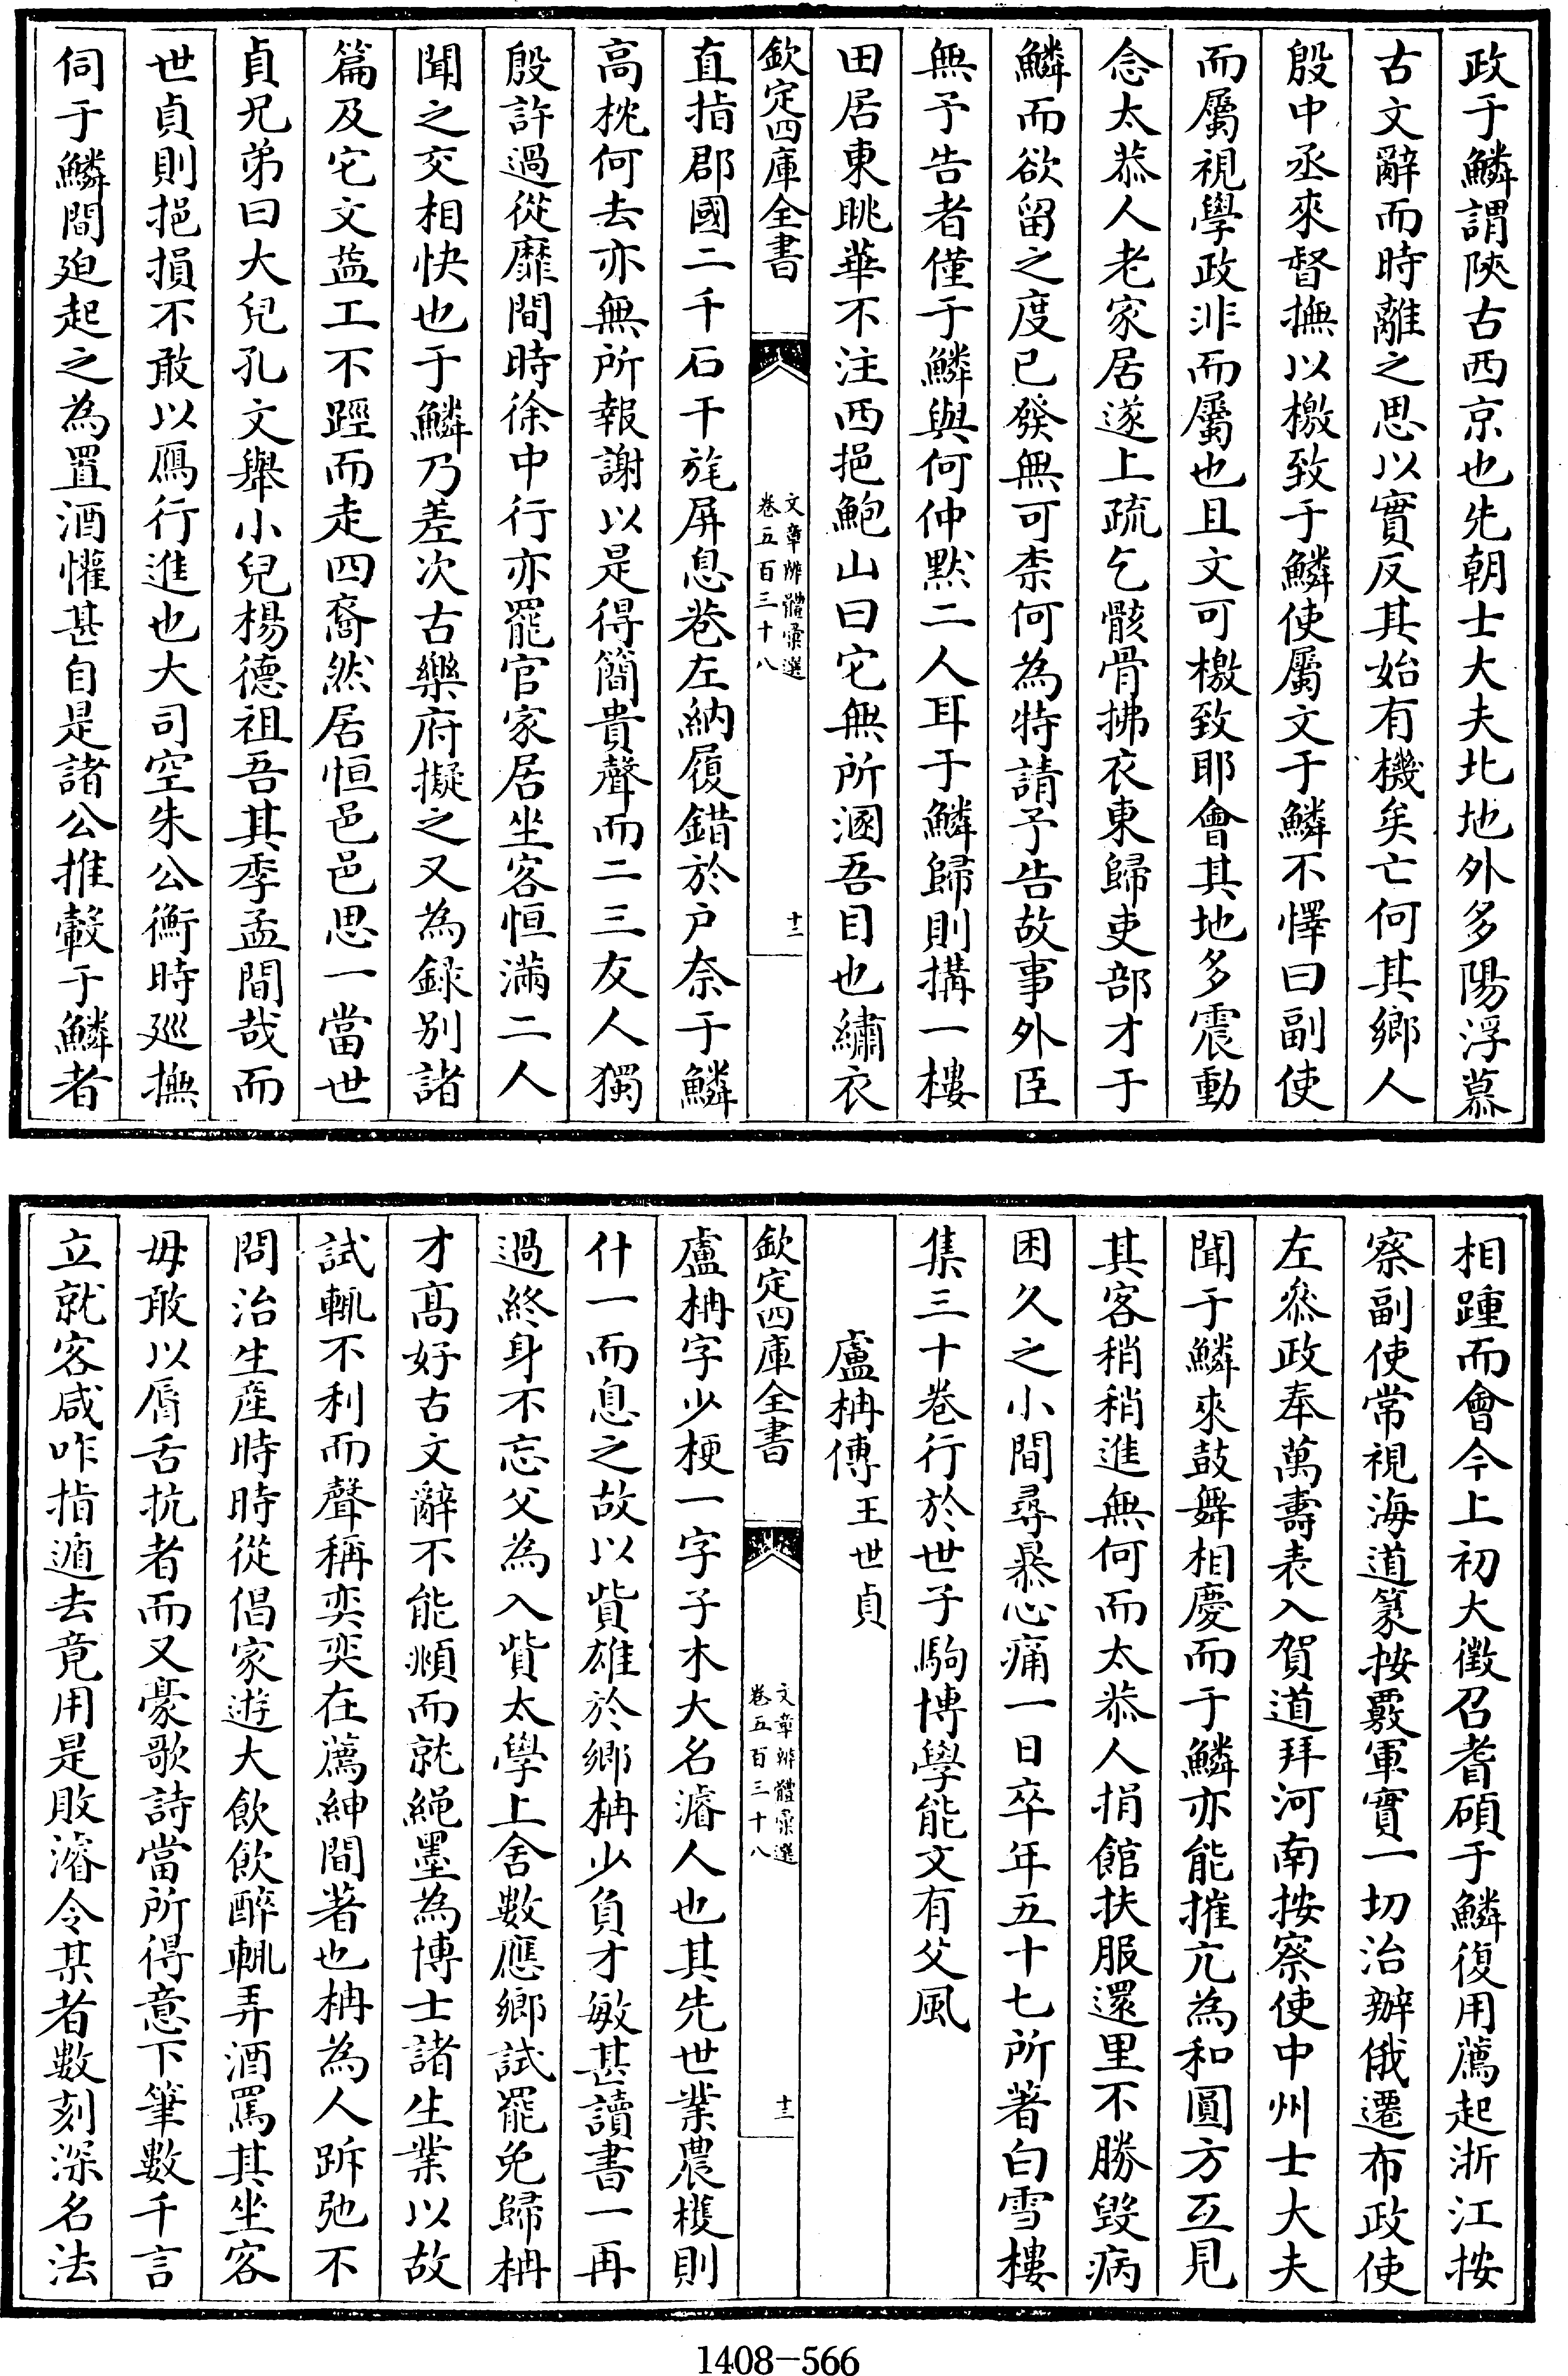 政于鱗謂陝古西京也先朝士大夫北地外多陽浮慕
古文辭而時離之思以實反其始有機矣亡何其鄉人
殷中丞來督撫以檄致于鱗使屬文于鱗不懌曰副使
而屬視學政非而屬也且文可檄致耶會其地多震動
念太恭人老家居遂上疏乞骸骨拂衣東歸吏部才于
鱗而欲留之度已發無可柰何為特請予告故事外臣
無予告者僅于鱗與何仲黙二人耳于鱗歸則搆一樓
田居東眺華不注西挹鮑山曰它無所溷吾目也繡衣
欽定四庫全書
文章辨體彙選
卷五百三十八
十二
直指郡國二千石干旄屏息巷左納履錯於户奈于鱗
高枕何去亦無所報謝以是得簡貴聲而二三友人獨
殷許過從靡間時徐中行亦罷官家居坐客恒滿二人
聞之交相快也于鱗乃差次古樂府擬之又為録别諸
篇及它文益工不踁而走四裔然居恒邑邑思一當世
貞兄弟曰大兒孔文舉小兒楊德祖吾其季孟間哉而
世貞則挹損不敢以鴈行進也大司空朱公衡時廵撫
伺于鱗間廹起之為置酒懽甚自是諸公推轂于鱗者
相踵而會今上初大徵召耆碩于鱗復用薦起浙江按
察副使常視海道篆按覈軍實一切治辦俄遷布政使
左叅政奉萬壽表入賀道拜河南按察使中州士大夫
聞于鱗來鼓舞相慶而于鱗亦能摧亢為和圓方互見
其客稍稍進無何而太恭人捐館扶服還里不勝毁病
困久之小間尋暴心痛一日卒年五十七所著白雪樓
集三十巻行於世子駒博學能文有父風
盧柟傳王世貞
欽定四庫全書
文章辨體彙選
卷五百三十八
十三
盧柟字少楩一字子木大名濬人也其先世業農穫則
什一而息之故以貲雄於鄉柟少負才敏甚讀書一再
過終身不忘父為入貲太學上舍數應鄉試罷免歸柟
才髙好古文辭不能頫而就繩墨為博士諸生業以故
試輒不利而聲稱奕奕在薦紳間著也柟為人跅弛不
問治生産時時從倡家遊大飲飲醉輒弄酒罵其坐客
毋敢以脣舌抗者而又豪歌詩當所得意下筆數千言
立就客咸咋指遁去竟用是敗濬令某者數刻深名法
1408-566